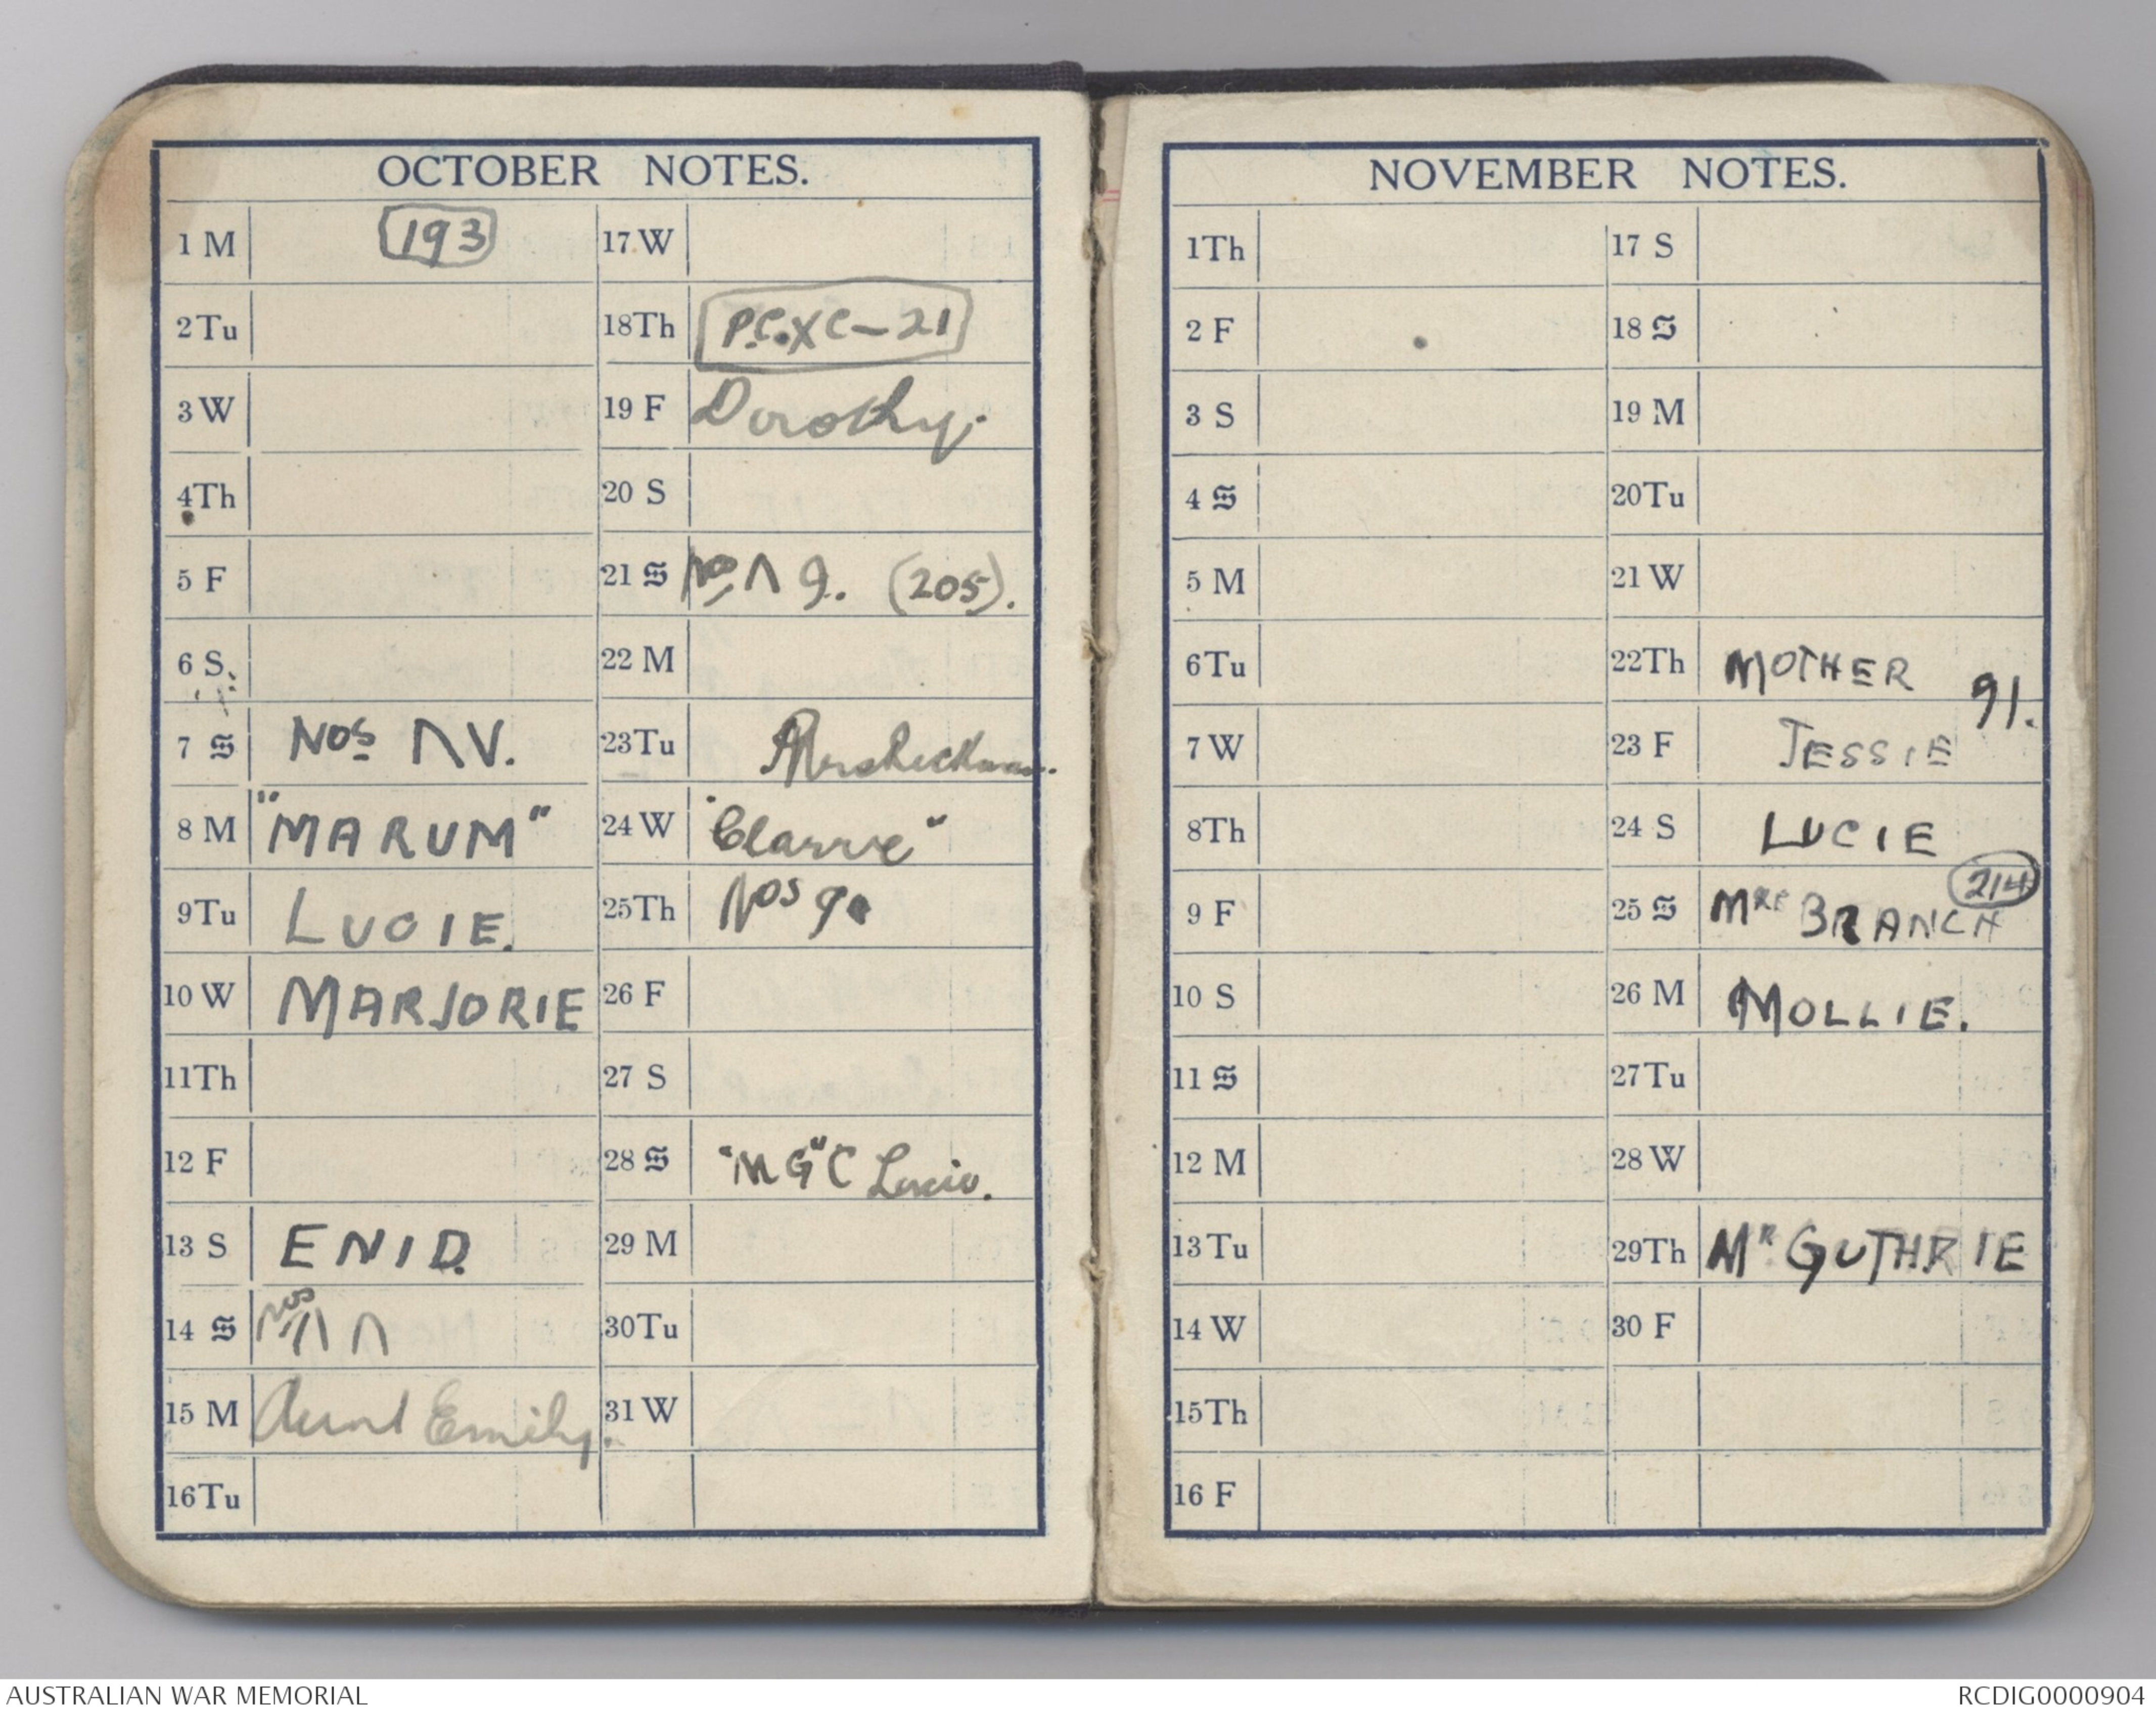 OCTOBER NOTES.
1 M 193
2 Tu
3 W
4 Th
5 F
6 S
7 S Nos Λ V.
8 M "MARUM"
9 Tu LUCIE.
10 W MARJORIE
11 Th
12 F
13 S ENID.
14 S Nos
15 M Aunt Emily.
16 Tu
17 W
18 Th P.C. XC-21
19 F Dorothy.
20 S
21 S No Λ 9. (205).
22 M
23 Tu
24 W
25 Th Nos 9
26 F
27 S
28 S "MG" C Lucie.
29 M
30 Tu
31 W
NOVEMBER NOTES.
1 Th
2 F
3 S
4 S
5 M
6 Tu
7 W
8 Th
9 F
10 S
11 S
12 M
13 Tu
14 W
15 Th
16 F
17 S
18 S
19 M
20 Tu
21 W
22 Th MOTHER 91.
23 F JESSIE
24 S LUCIE
25 S MRS BRANCH 214
26 M MOLLIE.
27 Tu
28 W
29 Th MR GUTHRIE
30 F
AUSTRALIAN WAR MEMORIAL
RCDIG0000904